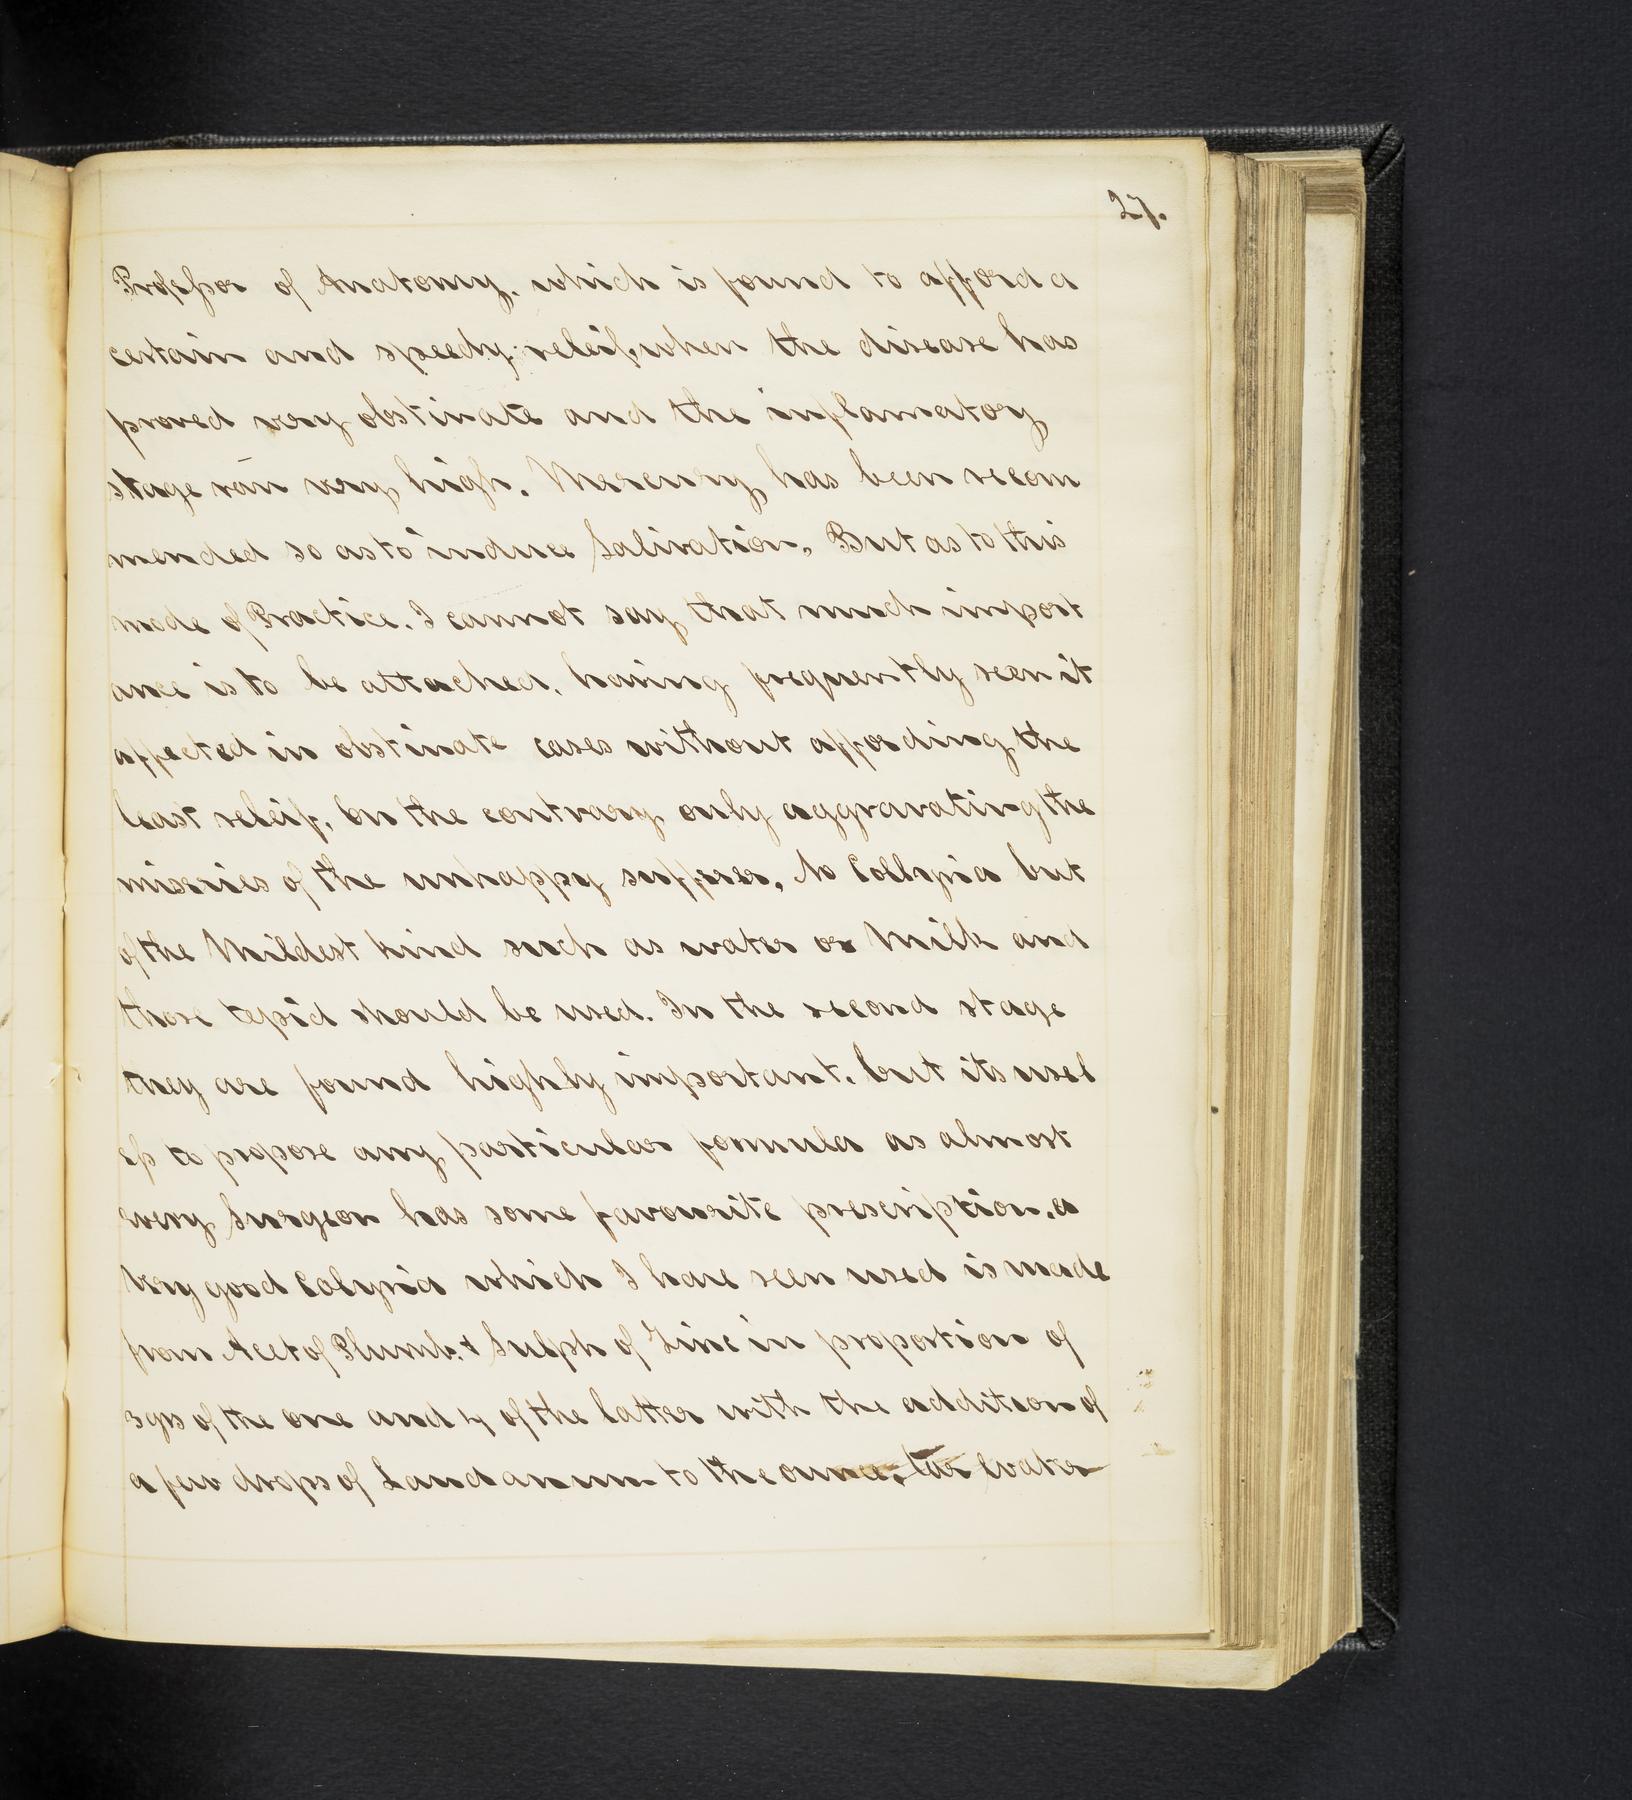 27.
Professor of Anatomy. which is found to afford a
certain and speedy releif, when the disease has
proved very obstinate and the inflamatory
stage ran very high. Mercury has been recom
mended so as to induce Salivation. But as to this
mode of Practice. I cannot say that much import
ance is to be attached. having frequently seen it
affected in obstinate cases without affording the
least releif, On the contrary only aggravating the
miseries of the unhappy suffrer, No Collyria but
of the Mildest kind such as water or Milk and
those tepid should be used. In the second stage
they are found highly important. but its usel
ess to propose any particular formula as almost
every Surgeon has some favourite prescription. a
Very good Colyria which I have seen used is made
from Acet of Plumb. & Sulph of Zinc in proportion of
3 grs of the one and 4 of the latter with the addition of
a few drops of Laudanum to the ounce, water